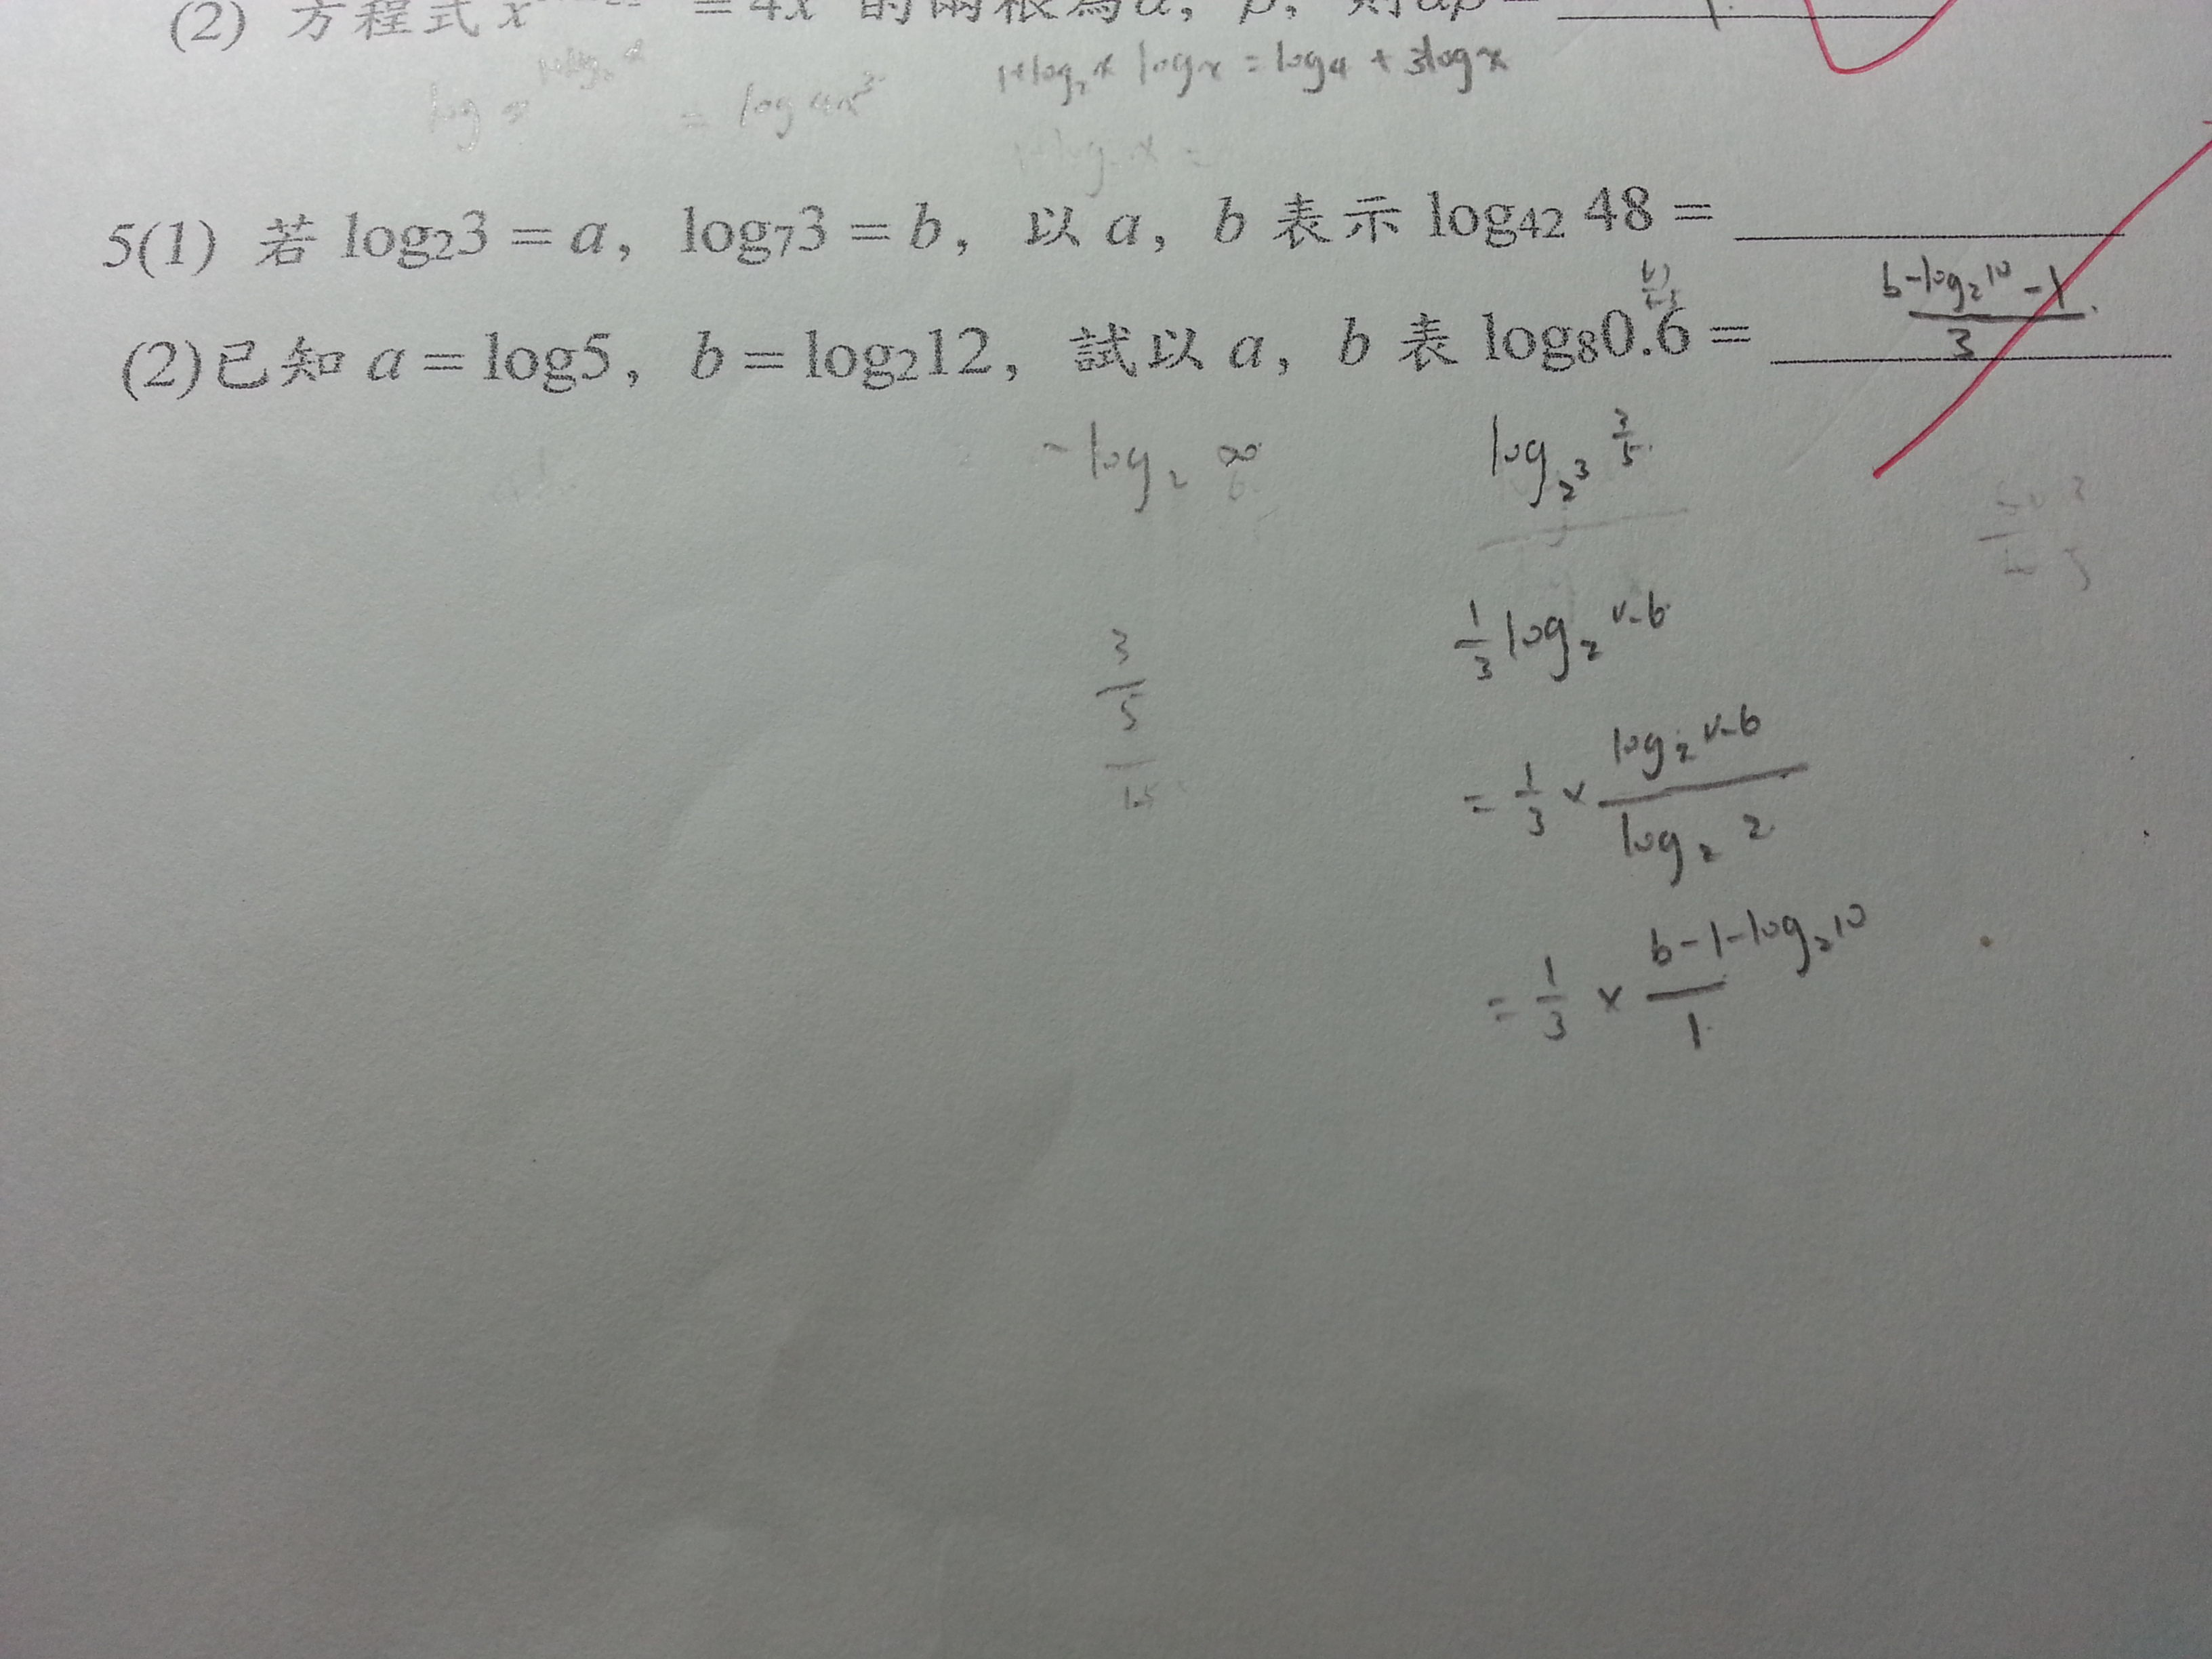 (2) 方程式 x = 4x 的兩根為α, β, 則αβ=
log x^(1+log₂x) = log 4x³
1+log₂x logx = log4 + 3logx
5(1) 若 log₂3 = a, log₇3 = b, 以 a, b 表示 log₄₂ 48 =
(2)已知 a = log5, b = log₂12, 試以 a, b 表 log₈0.6 =
(b-log₂10-1)/3
-log₂
log₂³ 3/5
1/3 log₂ 0.6
3/5
= 1/3 × (log₂ 0.6)/(log₂ 2)
= 1/3 × (b-1-log₂10)/1